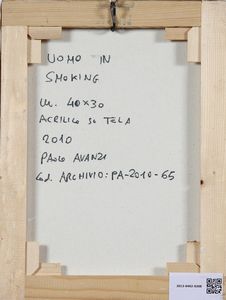 UOMO IN
SMOKING
cm. 40x30
ACRILICO SU TELA
2010
PAOLO AVANZI
Cod. ARCHIVIO: PA-2010-65